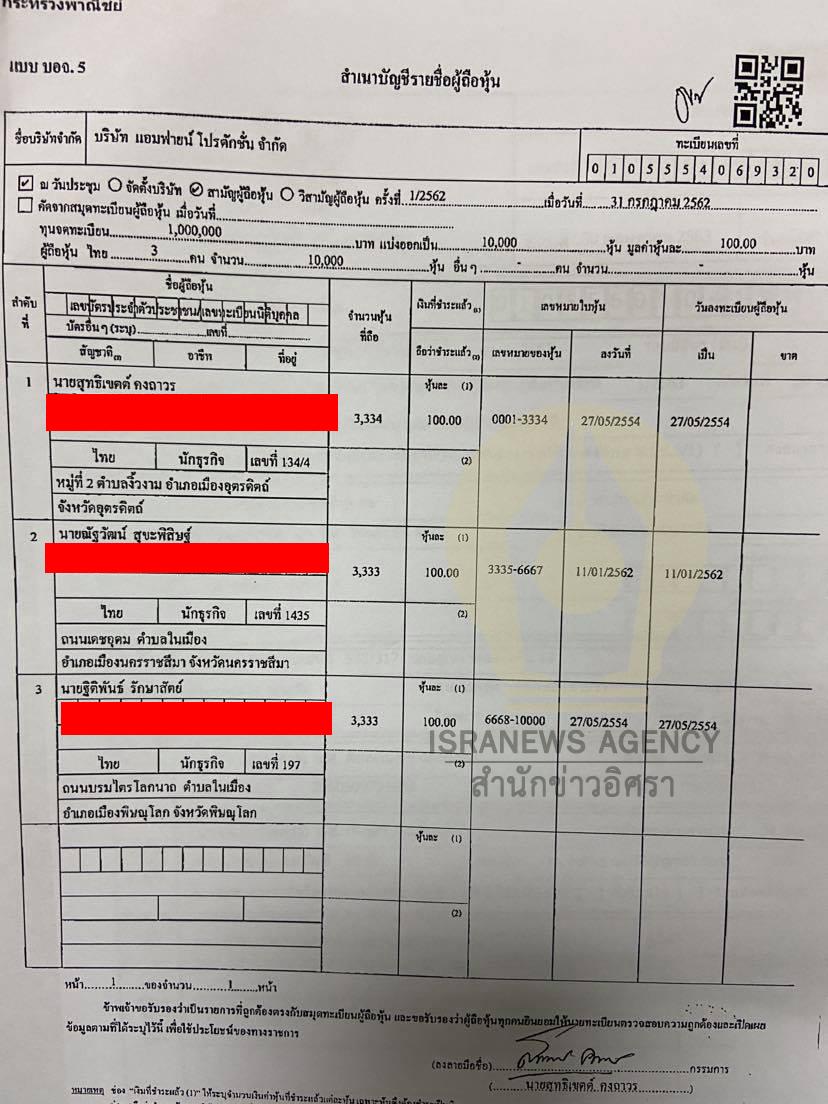 กระทรวงพาณิชย์
แบบ บอจ. 5
สำเนาบัญชีรายชื่อผู้ถือหุ้น
ชื่อบริษัทจำกัด บริษัท แอมฟายน์ โปรดักชั่น จำกัด
ทะเบียนเลขที่
0105554069320
☑ ณ วันประชุม ○ จัดตั้งบริษัท ☑ สามัญผู้ถือหุ้น ○ วิสามัญผู้ถือหุ้น ครั้งที่ 1/2562 เมื่อวันที่ 31 กรกฎาคม 2562
☐ คัดจากสมุดทะเบียนผู้ถือหุ้น เมื่อวันที่
ทุนจดทะเบียน 1,000,000 บาท แบ่งออกเป็น 10,000 หุ้น มูลค่าหุ้นละ 100.00 บาท
ผู้ถือหุ้น ไทย 3 คน จำนวน 10,000 หุ้น อื่น ๆ - คน จำนวน - หุ้น
ลำดับที่
ชื่อผู้ถือหุ้น
เลขบัตรประจำตัวประชาชน/เลขทะเบียนนิติบุคคล
บัตรอื่นๆ (ระบุ) เลขที่
สัญชาติ(3) อาชีพ ที่อยู่
จำนวนหุ้นที่ถือ
เงินที่ชำระแล้ว(1)
ถือว่าชำระแล้ว(2)
เลขหมายใบหุ้น
เลขหมายของหุ้น ลงวันที่
วันลงทะเบียนผู้ถือหุ้น
เป็น ขาด
1 นายสุทธิเขตต์ คงถาวร หุ้นละ (1)
3,334 100.00 0001-3334 27/05/2554 27/05/2554
ไทย นักธุรกิจ เลขที่ 134/4 (2)
หมู่ที่ 2 ตำบลงิ้วงาม อำเภอเมืองอุตรดิตถ์
จังหวัดอุตรดิตถ์
2 นายณัฐวัฒน์ สุขะพิสิษฐ์ หุ้นละ (1)
3,333 100.00 3335-6667 11/01/2562 11/01/2562
ไทย นักธุรกิจ เลขที่ 1435 (2)
ถนนเดชอุดม ตำบลในเมือง
อำเภอเมืองนครราชสีมา จังหวัดนครราชสีมา
3 นายฐิติพันธ์ รักษาสัตย์ หุ้นละ (1)
3,333 100.00 6668-10000 27/05/2554 27/05/2554
ISRANEWS AGENCY
ไทย นักธุรกิจ เลขที่ 197 (2)
สำนักข่าวอิศรา
ถนนบรมไตรโลกนาถ ตำบลในเมือง
อำเภอเมืองพิษณุโลก จังหวัดพิษณุโลก
หุ้นละ (1)
(2)
หน้า 1 ของจำนวน 1 หน้า
ข้าพเจ้าขอรับรองว่าเป็นรายการที่ถูกต้องตรงกับสมุดทะเบียนผู้ถือหุ้น และขอรับรองว่าผู้ถือหุ้นทุกคนยินยอมให้นายทะเบียนตรวจสอบความถูกต้องและเปิดเผย
ข้อมูลตามที่ได้ระบุไว้นี้ เพื่อใช้ประโยชน์ของทางราชการ
(ลงลายมือชื่อ) กรรมการ
(นายสุทธิเขตต์ คงถาวร)
หมายเหตุ ช่อง "เงินที่ชำระแล้ว (1)" ให้ระบุจำนวนเงินค่าหุ้นที่ชำระแล้วแต่ละหุ้น